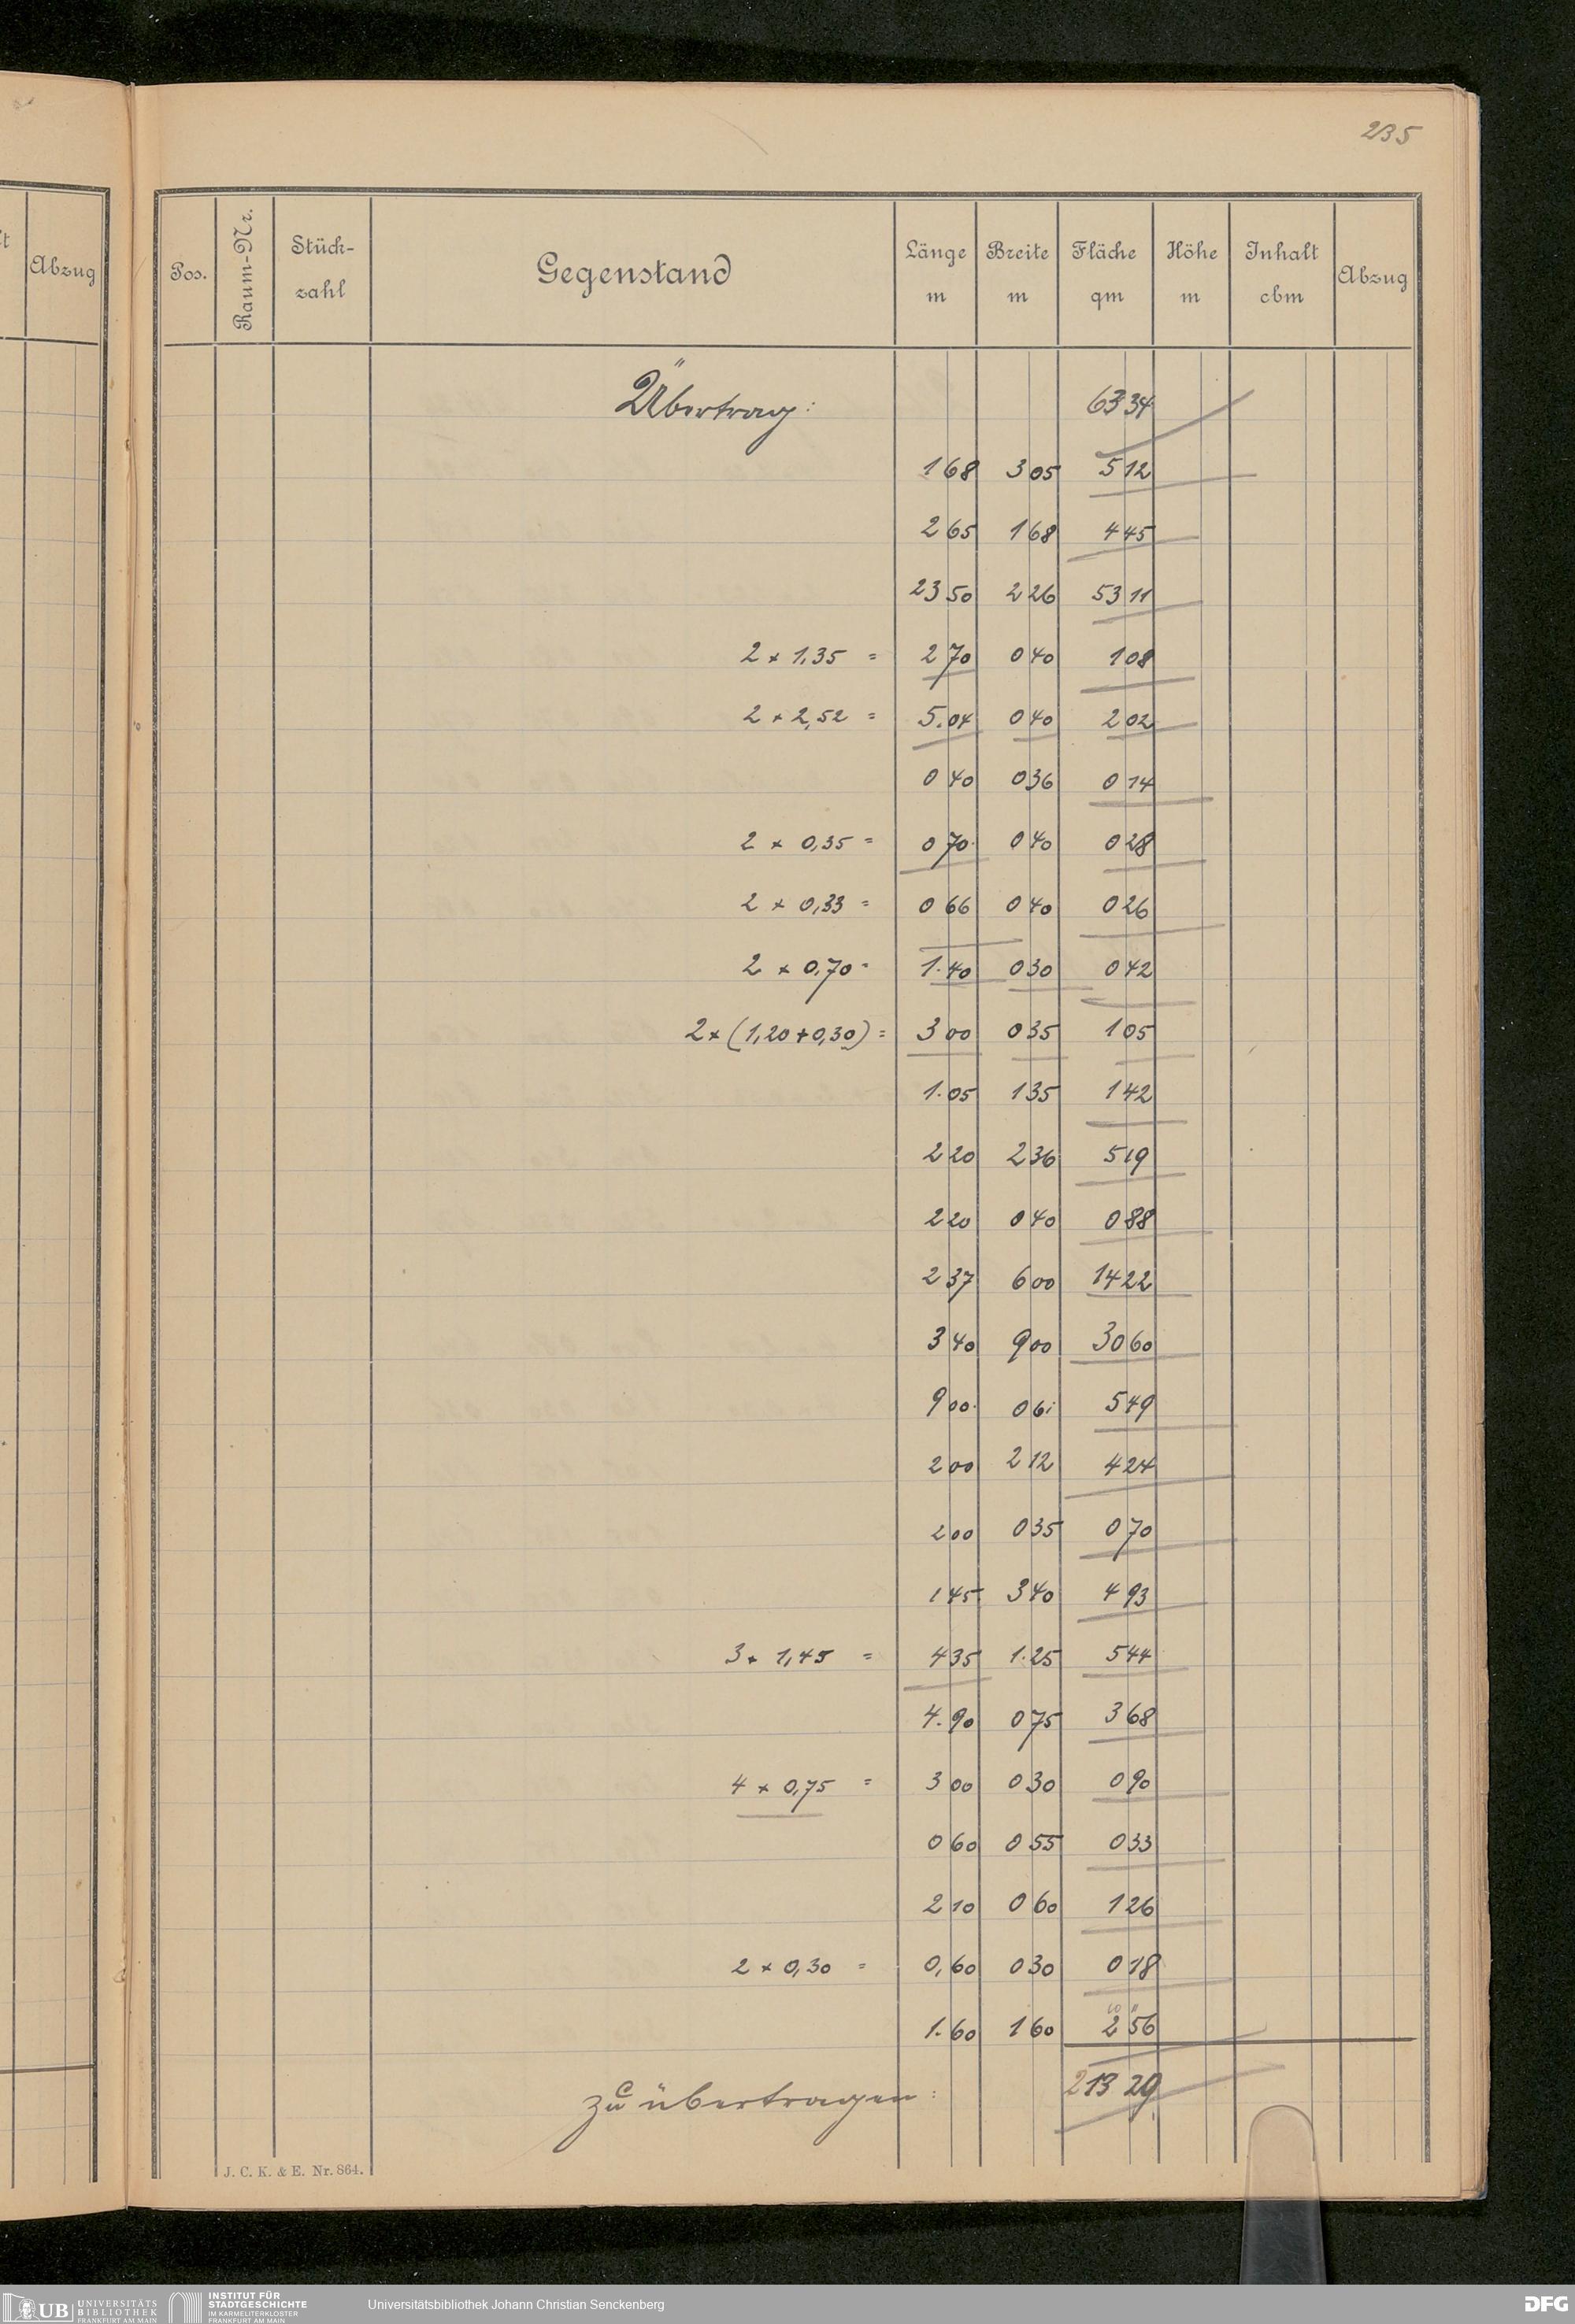 235
t
Abzug
Pos.
Raum-Nr.
Stück-
zahl
Gegenstand
Länge
m
Breite
m
Fläche
qm
Höhe
m
Inhalt
cbm
Abzug
Übertrag: 63 34
1 68 3 05 5 12
2 65 1 68 4 45
23 50 2 26 53 11
2 × 1,35 = 2 70 0 40 1 08
2 × 2,52 = 5.04 0 40 2 02
0 40 0 36 0 14
2 × 0,35 = 0 70 0 40 0 28
2 × 0,33 = 0 66 0 40 0 26
2 × 0,70 = 1.40 0 30 0 42
2 × (1,20 + 0,30) = 3 00 0 35 1 05
1.05 1 35 1 42
2 20 2 36 5 19
2 20 0 40 0 88
2 37 6 00 14 22
3 40 9 00 30 60
9 00 0 61 5 49
2 00 2 12 4 24
2 00 0 35 0 70
1 45 3 40 4 93
3 × 1,45 = 4 35 1.25 5 44
4.90 0 75 3 68
4 × 0,75 = 3 00 0 30 0 90
0 60 0 55 0 33
2 10 0 60 1 26
2 × 0,30 = 0,60 0 30 0 18
1.60 1 60 2 56
zu übertragen: 213 29
J. C. K. & E. Nr. 864.
UB UNIVERSITÄTS
BIBLIOTHEK
FRANKFURT AM MAIN
INSTITUT FÜR
STADTGESCHICHTE
IM KARMELITERKLOSTER
FRANKFURT AM MAIN
Universitätsbibliothek Johann Christian Senckenberg
DFG